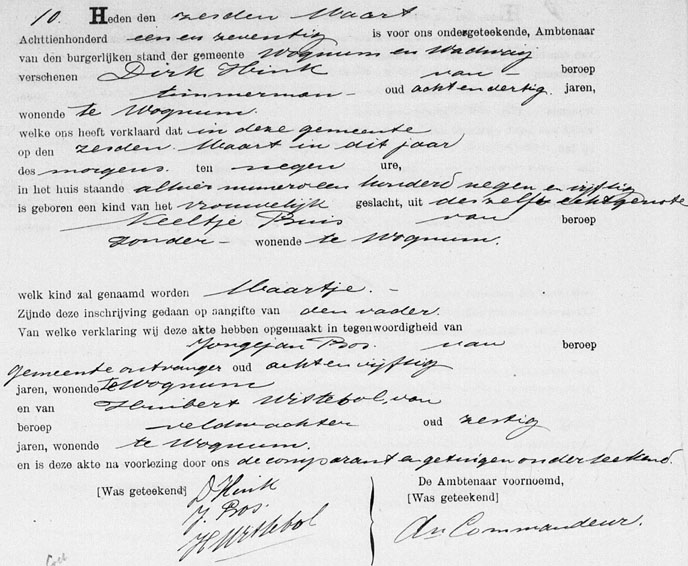 10. Heden den zesden Maart
Achttienhonderd een en zeventig is voor ons ondergeteekende, Ambtenaar
van den burgerlijken stand der gemeente Wognum en Wadway
verschenen Dirk Hink van beroep
timmerman oud acht en dertig jaren,
wonende te Wognum.
welke ons heeft verklaard dat in deze gemeente
op den zesden Maart in dit jaar
des morgens ten negen ure,
in het huis staande alhier numero een honderd negen en vijftig
is geboren een kind van het vrouwelijk geslacht, uit deszelfs echtgenote
Neeltje Buis van beroep
zonder wonende te Wognum.
welk kind zal genaamd worden Maartje.
Zijnde deze inschrijving gedaan op aangifte van den vader.
Van welke verklaring wij deze akte hebben opgemaakt in tegenwoordigheid van
Jongejan Bos. van beroep
Gemeente ontvanger oud acht en vijftig
jaren, wonende te Wognum
en van Huibert Wistebol, van
beroep veldwachter oud zestig
jaren, wonende te Wognum.
en is deze akte na voorlezing door ons de comparant en getuigen onderteekend.
[Was geteekend] D Hink
J. Bos.
H Wistebol
De Ambtenaar voornoemd,
[Was geteekend]
Commandeur.